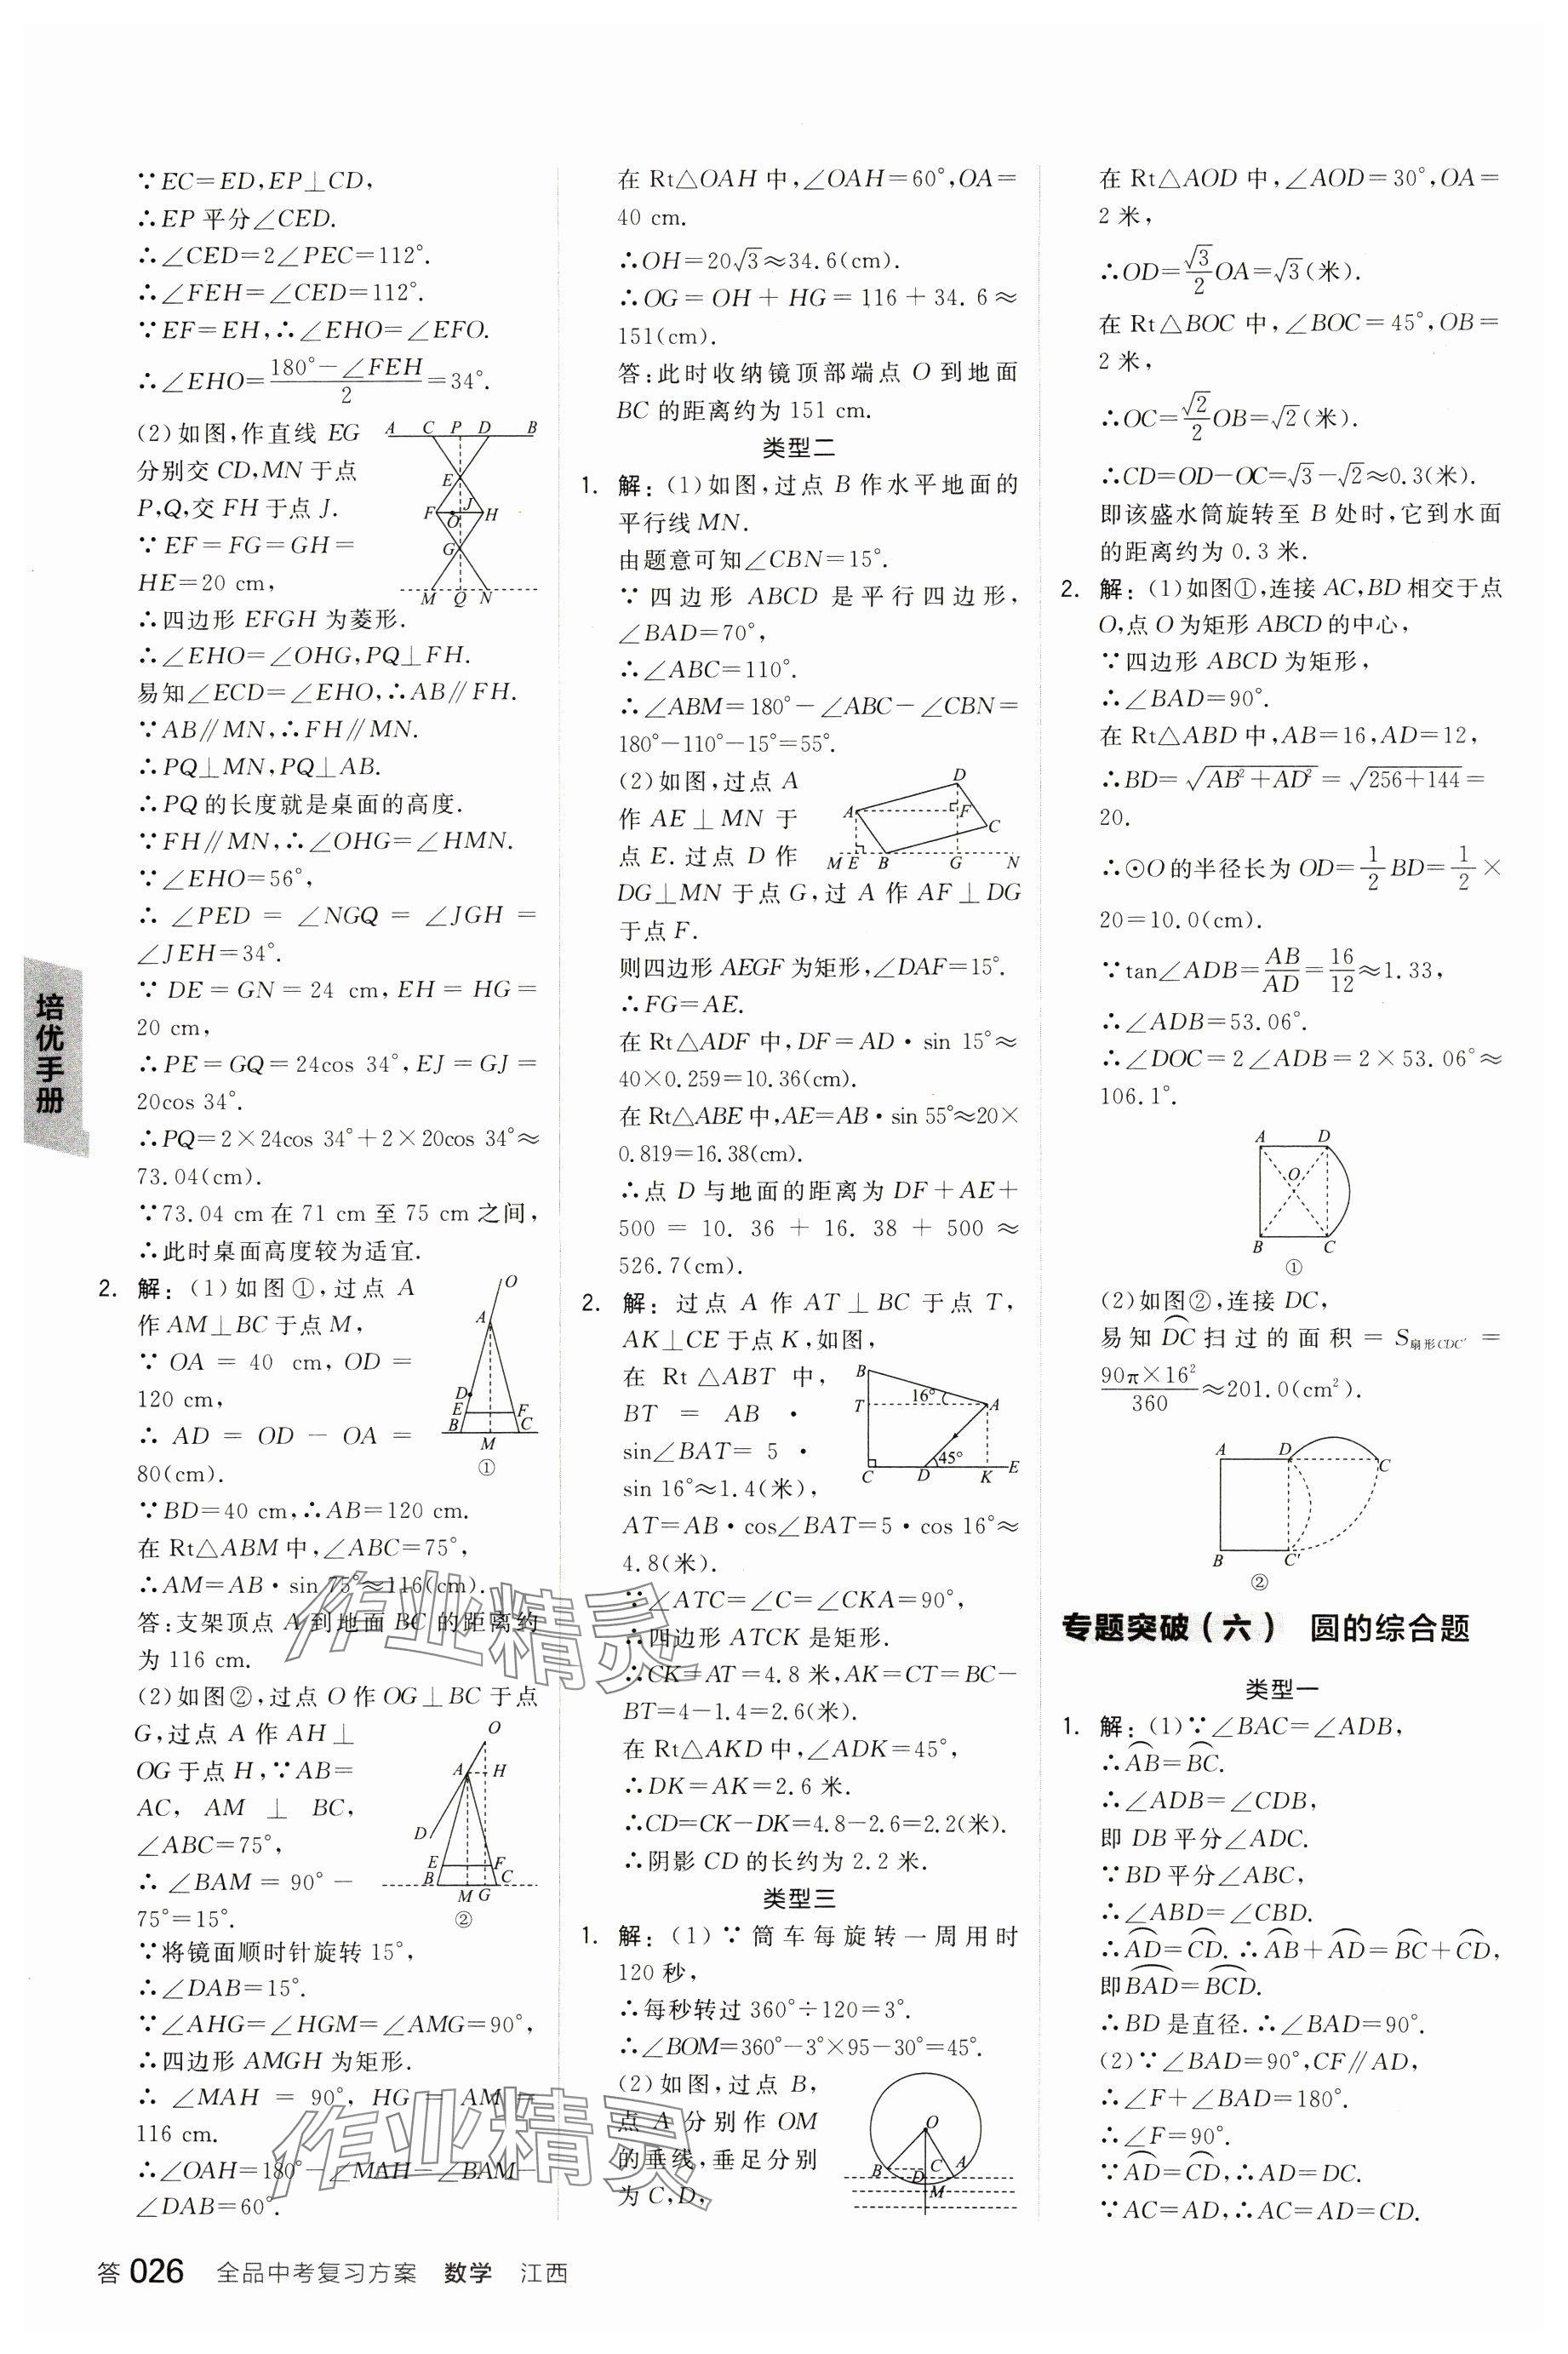 ∵EC=ED,EP⊥CD,
∴EP平分∠CED.
∴∠CED=2∠PEC=112°.
∴∠FEH=∠CED=112°.
∵EF=EH,∴∠EHO=∠EFO.
∴∠EHO=(180°−∠FEH)/2=34°.
(2)如图,作直线 EG
分别交 CD,MN 于点
P,Q,交 FH 于点 J.
∵EF=FG=GH=
HE=20 cm,
A C P D B
E
F J H
O
G
M Q N
∴四边形 EFGH 为菱形.
∴∠EHO=∠OHG,PQ⊥FH.
易知∠ECD=∠EHO,∴AB∥FH.
∵AB∥MN,∴FH∥MN.
∴PQ⊥MN,PQ⊥AB.
∴PQ的长度就是桌面的高度.
∵FH∥MN,∴∠OHG=∠HMN.
∵∠EHO=56°,
∴∠PED=∠NGQ=∠JGH=
∠JEH=34°.
∵DE=GN=24 cm,EH=HG=
20 cm,
∴PE=GQ=24cos 34°,EJ=GJ=
20cos 34°.
∴PQ=2×24cos 34°+2×20cos 34°≈
73.04(cm).
∵73.04 cm在 71 cm 至 75 cm之间,
∴此时桌面高度较为适宜.
2. 解:(1)如图①,过点 A
作AM⊥BC于点M,
∵OA=40 cm,OD=
120 cm,
∴AD=OD−OA=
80(cm).
O
A
D
E F
B C
M
①
∵BD=40 cm,∴AB=120 cm.
在 Rt△ABM中,∠ABC=75°,
∴AM=AB·sin 75°≈116(cm).
答:支架顶点 A 到地面 BC 的距离约
为 116 cm.
(2)如图②,过点 O 作 OG⊥BC 于点
G,过点 A 作 AH⊥
OG于点 H,∵AB=
AC, AM ⊥ BC,
∠ABC=75°,
∴∠BAM=90°−
75°=15°.
O
A H
D
E F
B C
M G
②
∵将镜面顺时针旋转 15°,
∴∠DAB=15°.
∵∠AHG=∠HGM=∠AMG=90°,
∴四边形 AMGH 为矩形.
∴∠MAH=90°,HG=AM=
116 cm.
∴∠OAH=180°−∠MAH−∠BAM−
∠DAB=60°.
在 Rt△OAH 中,∠OAH=60°,OA=
40 cm.
∴OH=20√3≈34.6(cm).
∴OG=OH+HG=116+34.6≈
151(cm).
答:此时收纳镜顶部端点 O 到地面
BC 的距离约为 151 cm.
类型二
1. 解:(1)如图,过点 B 作水平地面的
平行线 MN.
由题意可知∠CBN=15°.
∵四边形 ABCD 是平行四边形,
∠BAD=70°,
∴∠ABC=110°.
∴∠ABM=180°−∠ABC−∠CBN=
180°−110°−15°=55°.
(2)如图,过点 A
作 AE⊥MN 于
点 E.过点 D 作
D
A F
C
M E B G N
DG⊥MN 于点 G,过 A 作 AF⊥DG
于点 F.
则四边形 AEGF 为矩形,∠DAF=15°.
∴FG=AE.
在 Rt△ADF 中,DF=AD·sin 15°≈
40×0.259=10.36(cm).
在 Rt△ABE 中,AE=AB·sin 55°≈20×
0.819=16.38(cm).
∴点 D 与地面的距离为 DF+AE+
500=10.36+16.38+500≈
526.7(cm).
2. 解:过点 A 作 AT⊥BC 于点 T,
AK⊥CE于点 K,如图,
在 Rt△ABT 中,
BT = AB ·
sin∠BAT= 5 ·
sin 16°≈1.4(米),
B
16°
T A
45°
C D K E
AT=AB·cos∠BAT=5·cos 16°≈
4.8(米).
∵∠ATC=∠C=∠CKA=90°,
∴四边形 ATCK 是矩形.
∴CK=AT=4.8米,AK=CT=BC−
BT=4−1.4=2.6(米).
在 Rt△AKD 中,∠ADK=45°,
∴DK=AK=2.6 米.
∴CD=CK−DK=4.8−2.6=2.2(米).
∴阴影 CD 的长约为 2.2 米.
类型三
1. 解:(1)∵筒车每旋转一周用时
120 秒,
∴每秒转过 360°÷120=3°.
∴∠BOM=360°−3°×95−30°=45°.
(2)如图,过点 B,
点 A 分别作 OM
的垂线,垂足分别
为 C,D,
O
B D C A
M
在 Rt△AOD 中,∠AOD=30°,OA=
2 米,
∴OD=√3/2 OA=√3(米).
在 Rt△BOC 中,∠BOC=45°,OB=
2 米,
∴OC=√2/2 OB=√2(米).
∴CD=OD−OC=√3−√2≈0.3(米).
即该盛水筒旋转至 B 处时,它到水面
的距离约为 0.3 米.
2. 解:(1)如图①,连接 AC,BD相交于点
O,点 O 为矩形 ABCD 的中心,
∵四边形 ABCD 为矩形,
∴∠BAD=90°.
在 Rt△ABD 中,AB=16,AD=12,
∴BD=√(AB²+AD²)=√(256+144)=
20.
∴⊙O的半径长为 OD=1/2 BD=1/2×
20=10.0(cm).
∵tan∠ADB=AB/AD=16/12≈1.33,
∴∠ADB=53.06°.
∴∠DOC=2∠ADB=2×53.06°≈
106.1°.
A D
O
B C
①
(2)如图②,连接 DC,
易知 D͡C 扫过的面积=S扇形CDC′=
90π×16²/360≈201.0(cm²).
A D C
B C′
②
专题突破(六) 圆的综合题
类型一
1. 解:(1)∵∠BAC=∠ADB,
∴A͡B=B͡C.
∴∠ADB=∠CDB,
即 DB平分∠ADC.
∵BD平分∠ABC,
∴∠ABD=∠CBD.
∴A͡D=C͡D.∴A͡B+A͡D=B͡C+C͡D,
即B͡AD=B͡CD.
∴BD 是直径.∴∠BAD=90°.
(2)∵∠BAD=90°,CF∥AD,
∴∠F+∠BAD=180°.
∴∠F=90°.
∵A͡D=C͡D,∴AD=DC.
∵AC=AD,∴AC=AD=CD.
培优手册
作业精灵
作业精灵
答 026 全品中考复习方案 数学 江西